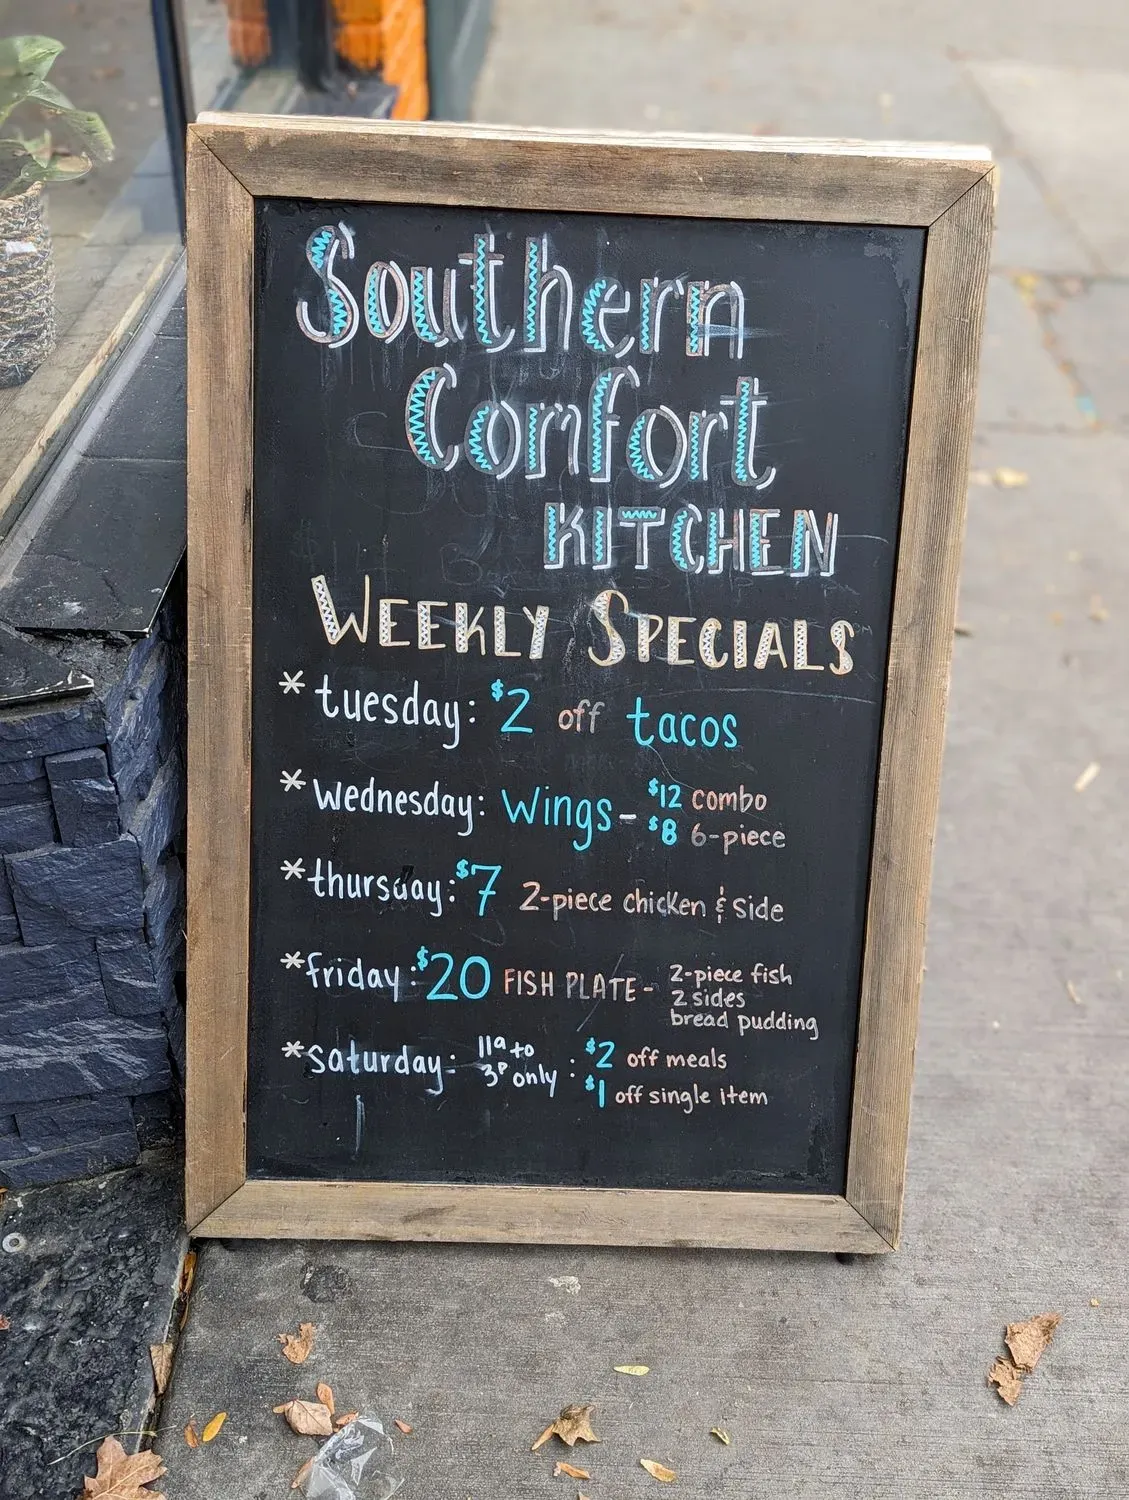 Southern
Comfort
KITCHEN
WEEKLY SPECIALS
* tuesday: $2 off tacos
* wednesday: wings - $12 combo
$8 6-piece
* thursday: $7 2-piece chicken & side
* friday: $20 FISH PLATE - 2-piece fish
2 sides
bread pudding
* saturday: 11a to 3p only : $2 off meals
$1 off single item